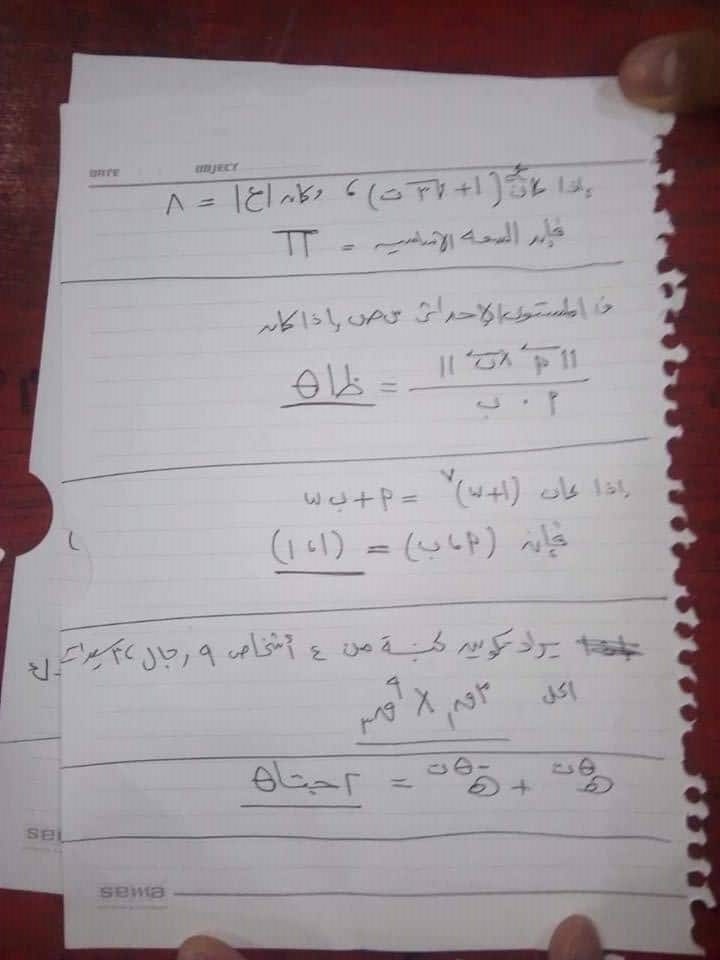 DATE SUBJECT
إذا كان (١+√٣ ت) ، وكان |ع| = ٨
فإن السعة الأساسية = π
في المستوى الإحداثي س ص إذا كان
||أ × ب|| / أ · ب = ظا θ
إذا كان (١+w)^٧ = أ + ب w
فإن (أ ، ب) = (١ ، ١)
يراد تكوين لجنة من ٤ أشخاص ٩ رجال ،
الحل ٣ق١ × ٩ق٣
هـ^θت + هـ^-θت = ٢ جتا θ
sema
sema